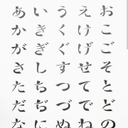 あいうえお
かきくけこ
がぎぐげご
さしすせそ
たちつてと
だぢづでど
なにぬねの